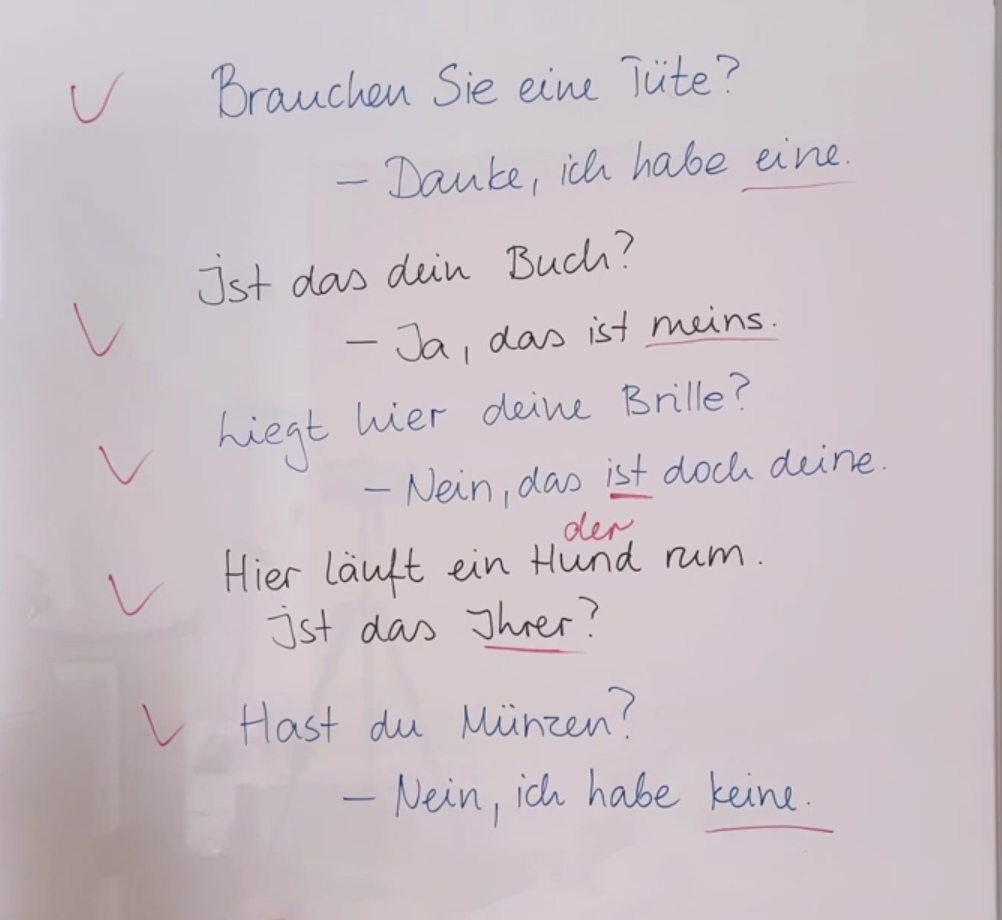 Brauchen Sie eine Tüte?
– Danke, ich habe eine.
Ist das dein Buch?
– Ja, das ist meins.
Liegt hier deine Brille?
– Nein, das ist doch deine.
der
Hier läuft ein Hund rum.
Ist das Ihrer?
Hast du Münzen?
– Nein, ich habe keine.